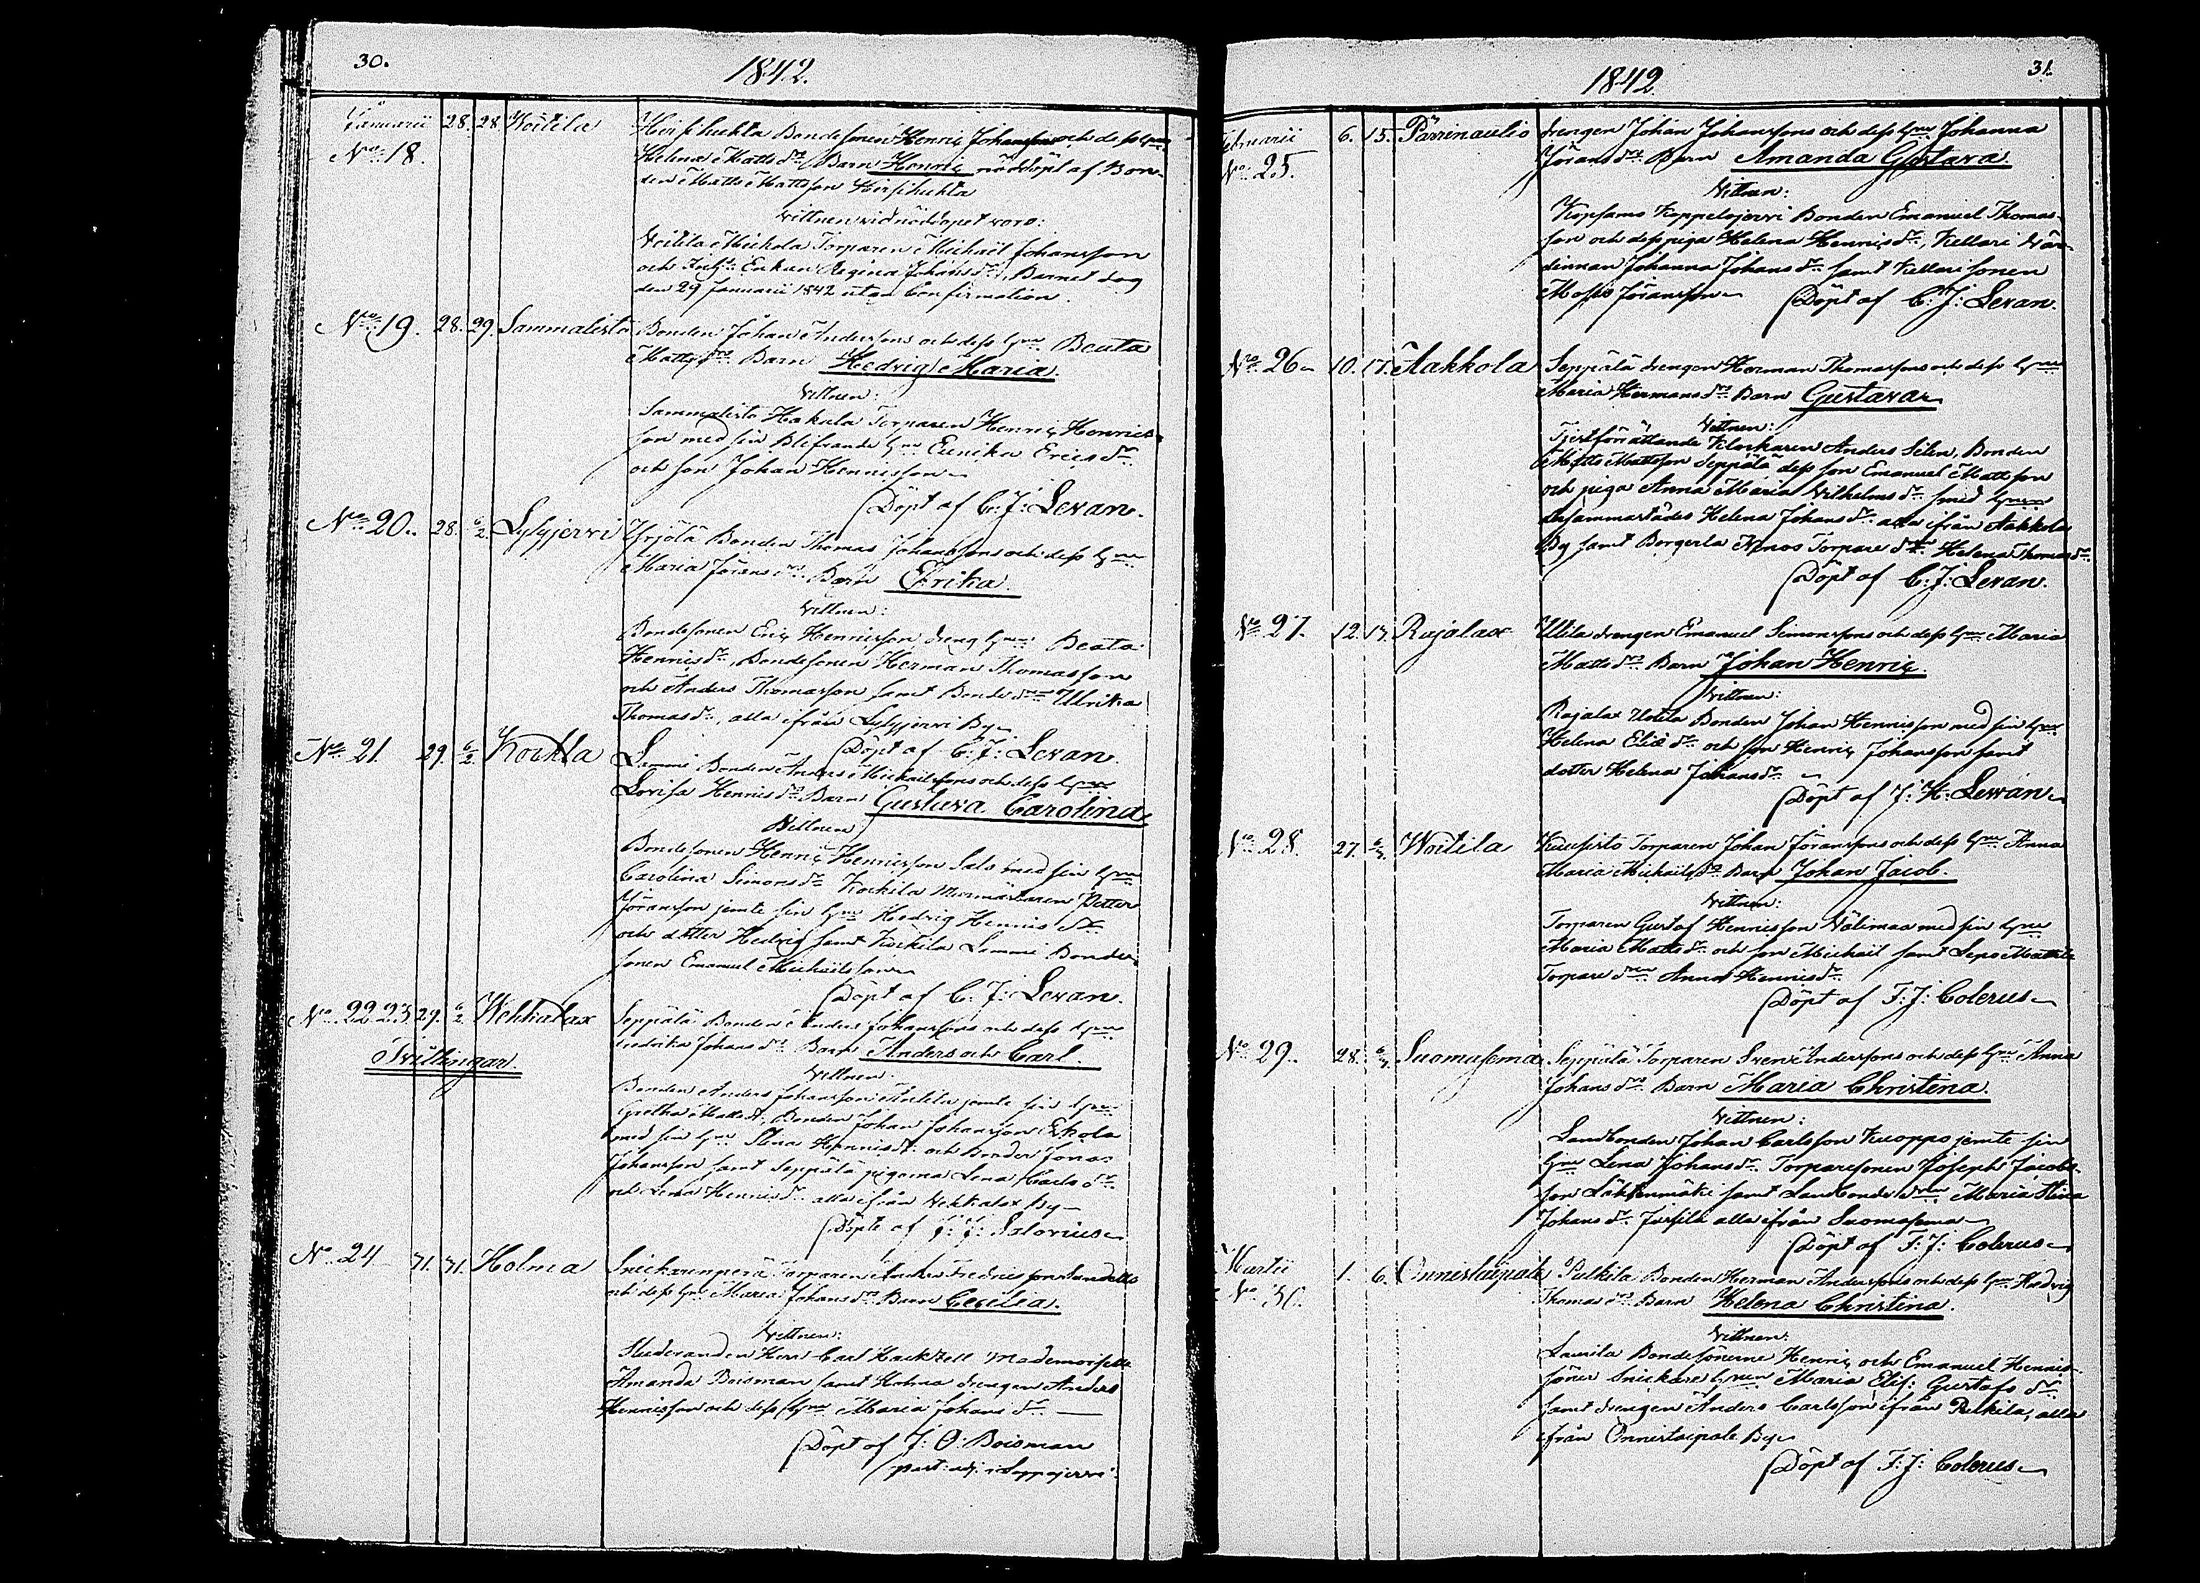 30.
1842.
Januarii 28. 28. Woitila Hirsihuhta Bondesonen Henric Johanssons och dess hu
No 18. Helena Matts dr Barn Henric nöddöpt af Bon-
den Matts Mattsson Hirsihuhta
Vittnen vid nöddopet voro:
Woitila Torparen Michaël Johansson
och Enkan Regina Johans dr, Barnet dog
den 29 Januarii 1842 utan Confirmation.
No 19. 28. 29. Sammalisto Bonden Johan Anderssons och dess hu Beata
Matts dr Barn Hedvig Maria.
Vittnen:
Sammalisto Hakula Torparen Henric Henrics-
son med sin hu Eunika Erics dr
och son Johan Henricsson
Döpt af C: J: Levan.
No 20. 28. 6/2. Lylyjervi Yrjölä Bonden Thomas Johanssons och dess hu
Maria Jörans dr Barn Erika.
Vittnen:
Bondesonen Eric Henricsson dreng hu Beata
Henrics dr, Bondesonen Herman Thomasson
och Anders Thomasson samt Bonde dr Ulrika
Thomas dr, alla ifrån Lylyjervi By
Döpt af C: J: Levan.
No 21. 29. 6/2. Kockla Lammi Bonden Anders Michaelssons och dess hu
Lovisa Henrics dr Barn Gustava Carolina
Vittnen:
Bondesonen Henric Henricsson Salo med sin hu
Carolina Simons dr Kockila Petter
Jöransson jemte sin hu Hedvig Henrics dr
och dotter Hedvig samt Kockila Lammi Bonde-
sonen Emanuel Michaelsson
Döpt af C: J: Levan.
No 22. 23. 29. 6/2. Wehkalax Seppälä Bonden Anders Johanssons och dess hu
Fredrika Johans dr Barn Anders och Carl.
Tvillingar.
Vittnen:
Bonden Anders Johansson jemte sin hu
Gretha Matts dr, Bonden Johan Johansson Eskola
med sin hu Stina Henrics dr och Bonden Jonas
Johansson samt Seppälä pigorna Lena Carls dr
och Lena Henrics dr alla ifrån Wehkalax By
Döpte af J: J: Salovius
No 24 31. 31. Holma Snickarinperä Torparen Anders Fredricsson
och dess hu Maria Johans dr Barn Cecilia.
Vittnen:
Studeranden Herr Carl Hackzell Mademoiselle
Amanda Boisman samt Holma drengen Anders
Henricsson och dess hu Maria Johans dr
Döpt af J: O: Boisman
past: adj: i Leppäjervi
1842
31.
Februarii 6. 15. Pärrinaulio drengen Johan Johanssons och dess hu Johanna
No 25. Jörans dr Barn Amanda Gustava.
Vittnen:
Kopsamo Koppelojervi Bonden Emanuel Thomas-
son och dess piga Helena Henrics dr, Kellari Vär-
dinnan Johanna Johans dr samt Kellari sonen
Moses Jöransson Döpt af C: J: Levan.
No 26 10. 17. Aakkola Seppälä drengen Herman Thomassons och dess hu
Maria Hermans dr Barn Gustava
Vittnen:
Tjenstförrättande Klockaren Anders Silen, Bonden
Matts Mattsson Seppälä dess son Emanuel Mattsson
och piga Anna Maria Wilhelms dr smed hu
dersammastädes Helena Johans dr alla ifrån Aakkola
By samt Borgerla Torpare dr Helena Thomas dr
Döpt af C: J: Levan.
No 27. 12. 17. Rajalax Utila drengen Emanuel Simonssons och dess hu Maria
Matts dr Barn Johan Henric
Vittnen:
Rajalax Utila Bonden Johan Henricsson med sin hu
Helena Eliæ dr och son Henric Johansson samt
dotter Helena Johans dr
Döpt af J: H: Lewan
No 28. 27. 6/3. Woitila Kuusisto Torparen Johan Jöranssons och dess hu Anna
Maria Michaels dr Barn Johan Jacob.
Vittnen:
Torparen Gustaf Henricsson Välimaa med sin hu
Maria Matts dr och son Michaël samt Seps Mattila
Torpare dr Anna Henrics dr
Döpt af F: J: Colerus
No 29. 28. 6/3. Suomasema Seppälä Torparen Sven Anderssons och dess hu Anna
Johans dr Barn Maria Christina.
Vittnen:
Landbonden Johan Carlsson Kuoppo jemte sin
hu Lena Johans dr Torparesonen Joseph Jacobs-
son Läkkenmäki samt Landbonde dr Maria Stina
Johans dr Jussila alla ifrån Suomasema
Döpt af F: J: Colerus
Martii 1. 6. Onnistaipale Pulkila Bonden Herman Anderssons och dess hu Hedvig
No 30. Thomas dr Barn Helena Christina.
Vittnen:
Lamila Bondesönerne Henric och Emanuel Henrics-
söner Snickare hu Maria Elis: Gustafs dr
samt drengen Anders Carlsson ifrån Pulkila, alla
ifrån Onnistaipale By
Döpt af F: J: Colerus